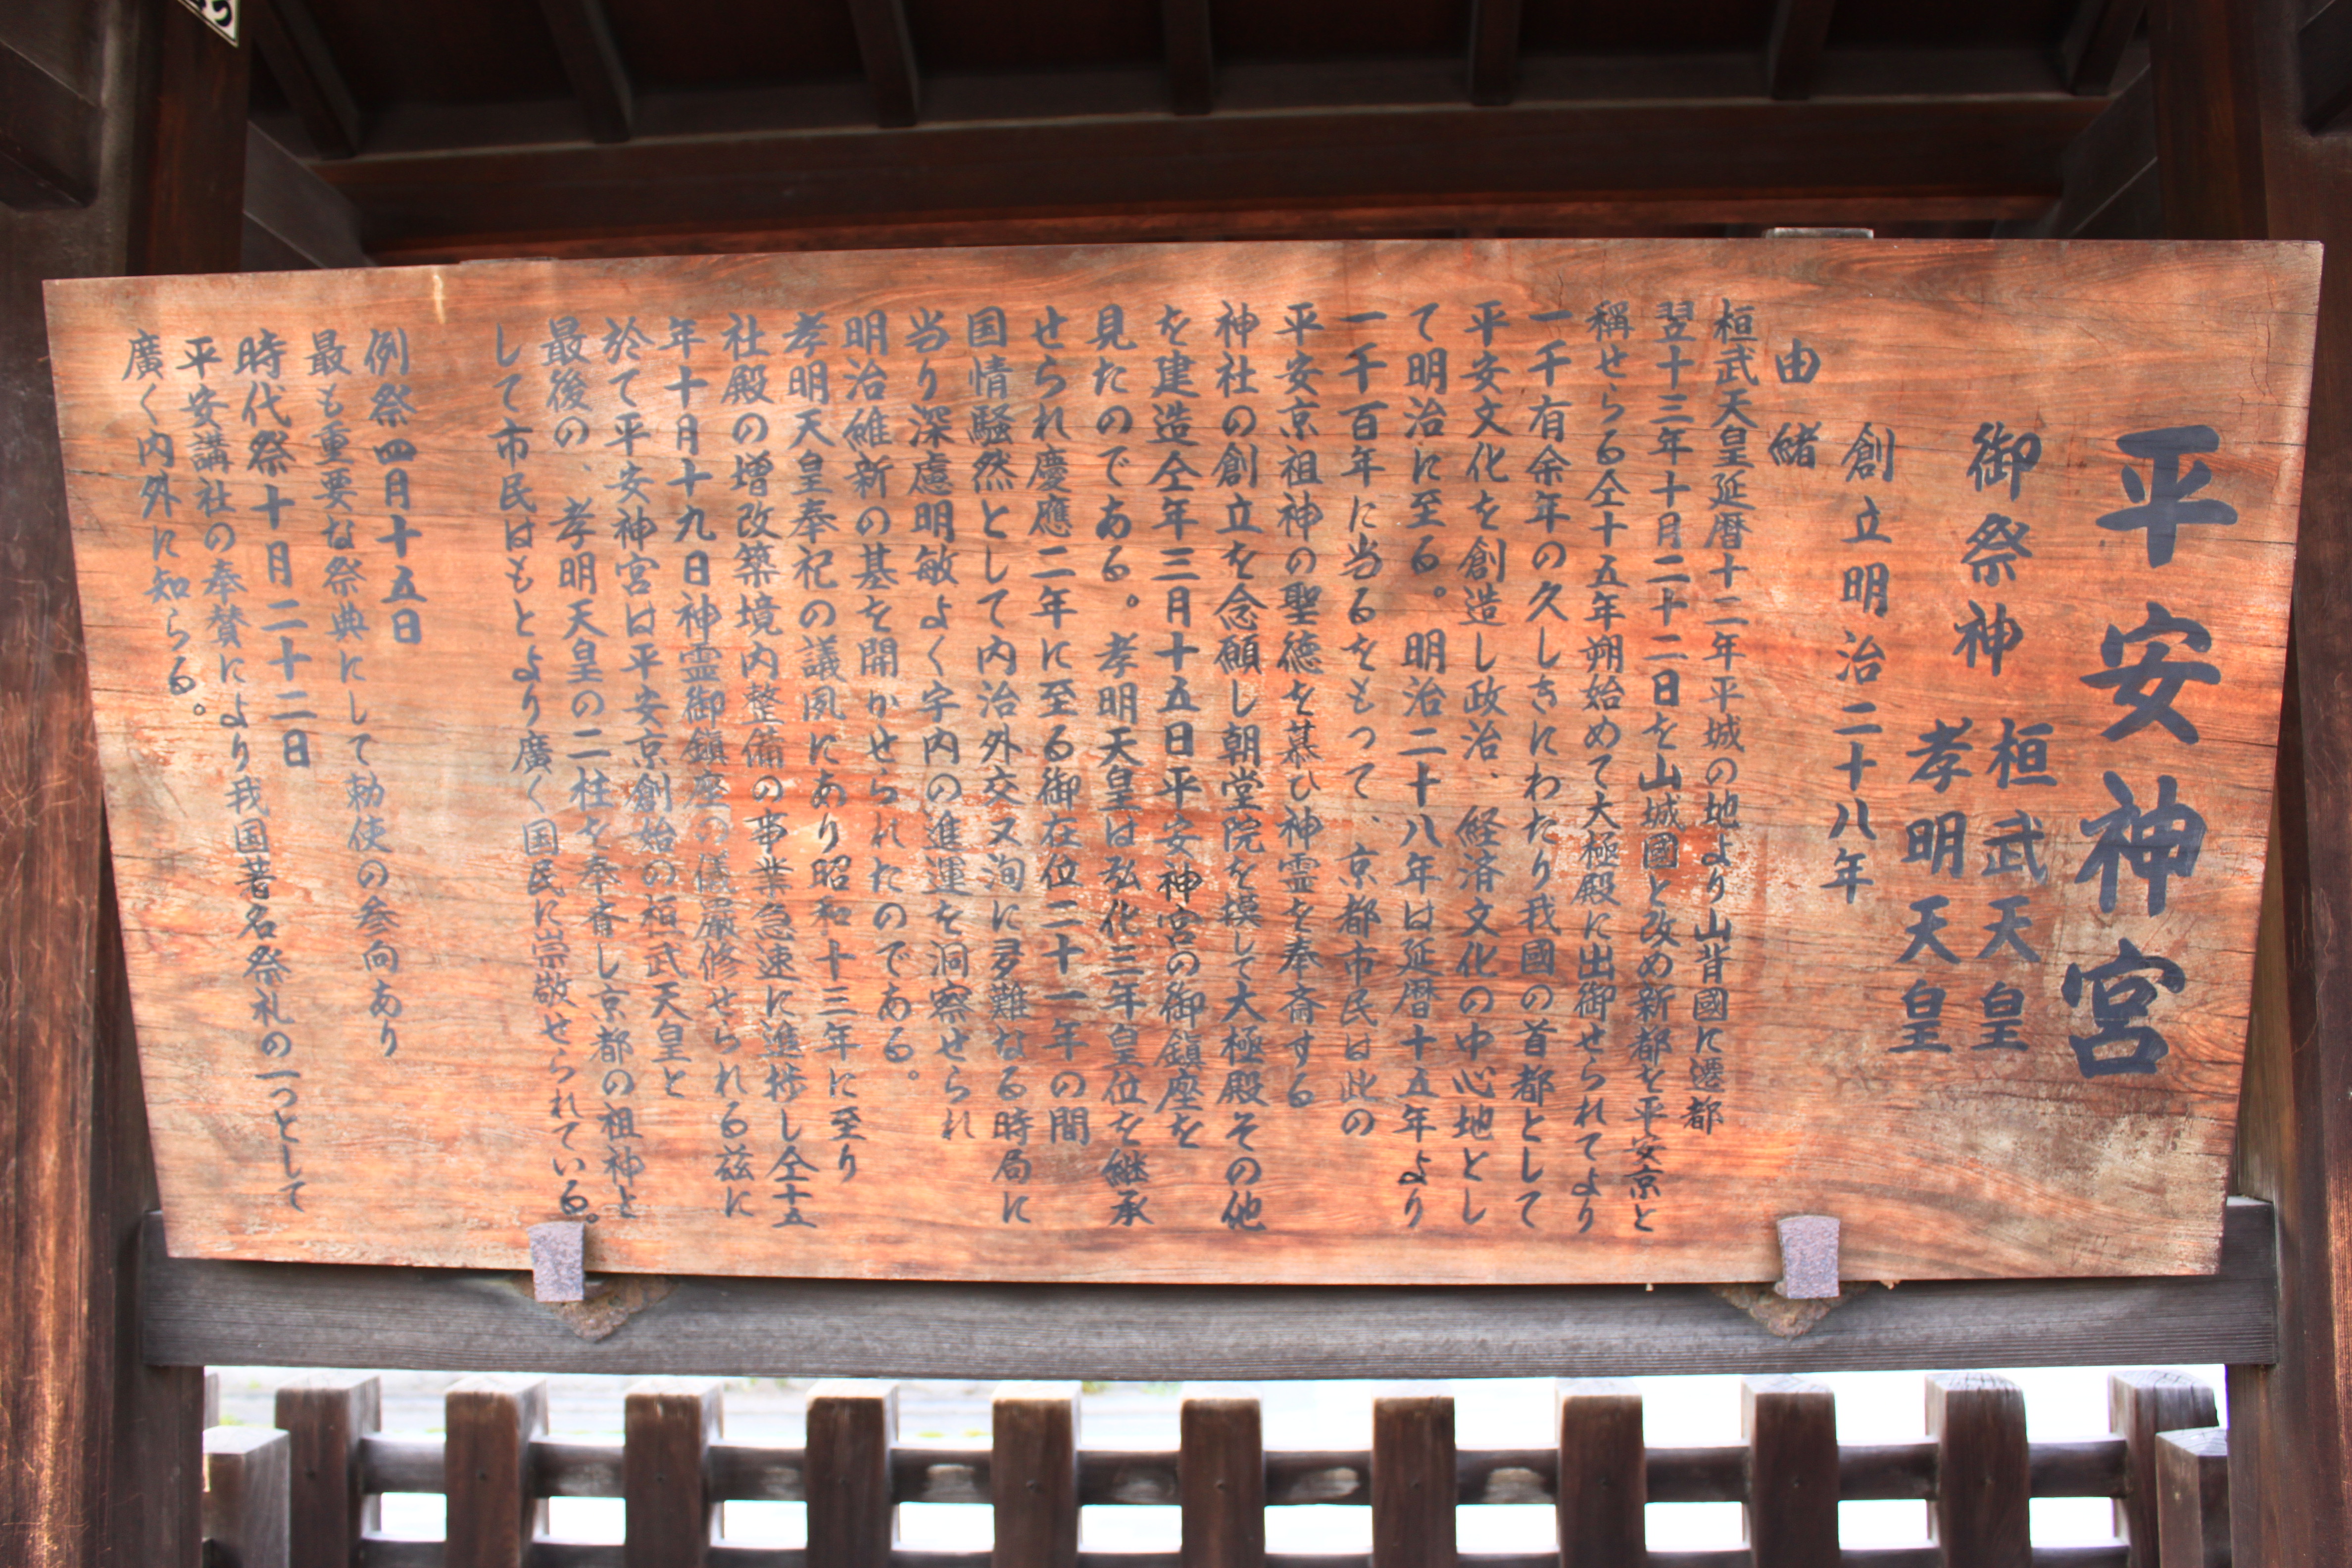 平安神宮
御祭神 桓武天皇
孝明天皇
創立明治二十八年
由緒
桓武天皇延暦十二年平城の地より山背國に遷都
翌十三年十月二十二日を山城國と改め新都を平安京と
稱せらる仝十五年朔始めて大極殿に出御せられてより
一千有余年の久しきにわたり我國の首都として
平安文化を創造し政治、経済文化の中心地とし
て明治に至る。明治二十八年は延暦十五年より
一千百年に当るをもって、京都市民は此の
平安京祖神の聖徳を慕ひ神霊を奉斎する
神社の創立を念願し朝堂院を模して大極殿その他
を建造仝年三月十五日平安神宮の御鎮座を
見たのである。孝明天皇は弘化三年皇位を継承
せられ慶應二年に至る御在位二十一年の間
国情騒然として内治外交又洵に多難なる時局に
当り深慮明敏よく宇内の進運を洞察せられ
明治維新の基を開かせられたのである。
孝明天皇奉祀の議夙にあり昭和十三年に至り
社殿の増改築境内整備の事業急速に進捗し仝十五
年十月十九日神霊御鎮座の儀厳修せられる茲に
於て平安神宮は平安京創始の桓武天皇と
最後の、孝明天皇の二柱を奉斎し京都の祖神と
して市民はもとより廣く国民に崇敬せられている。
例祭四月十五日
最も重要な祭典にして勅使の参向あり
時代祭十月二十二日
平安講社の奉賛により我国著名祭礼の一つとして
廣く内外に知らる。